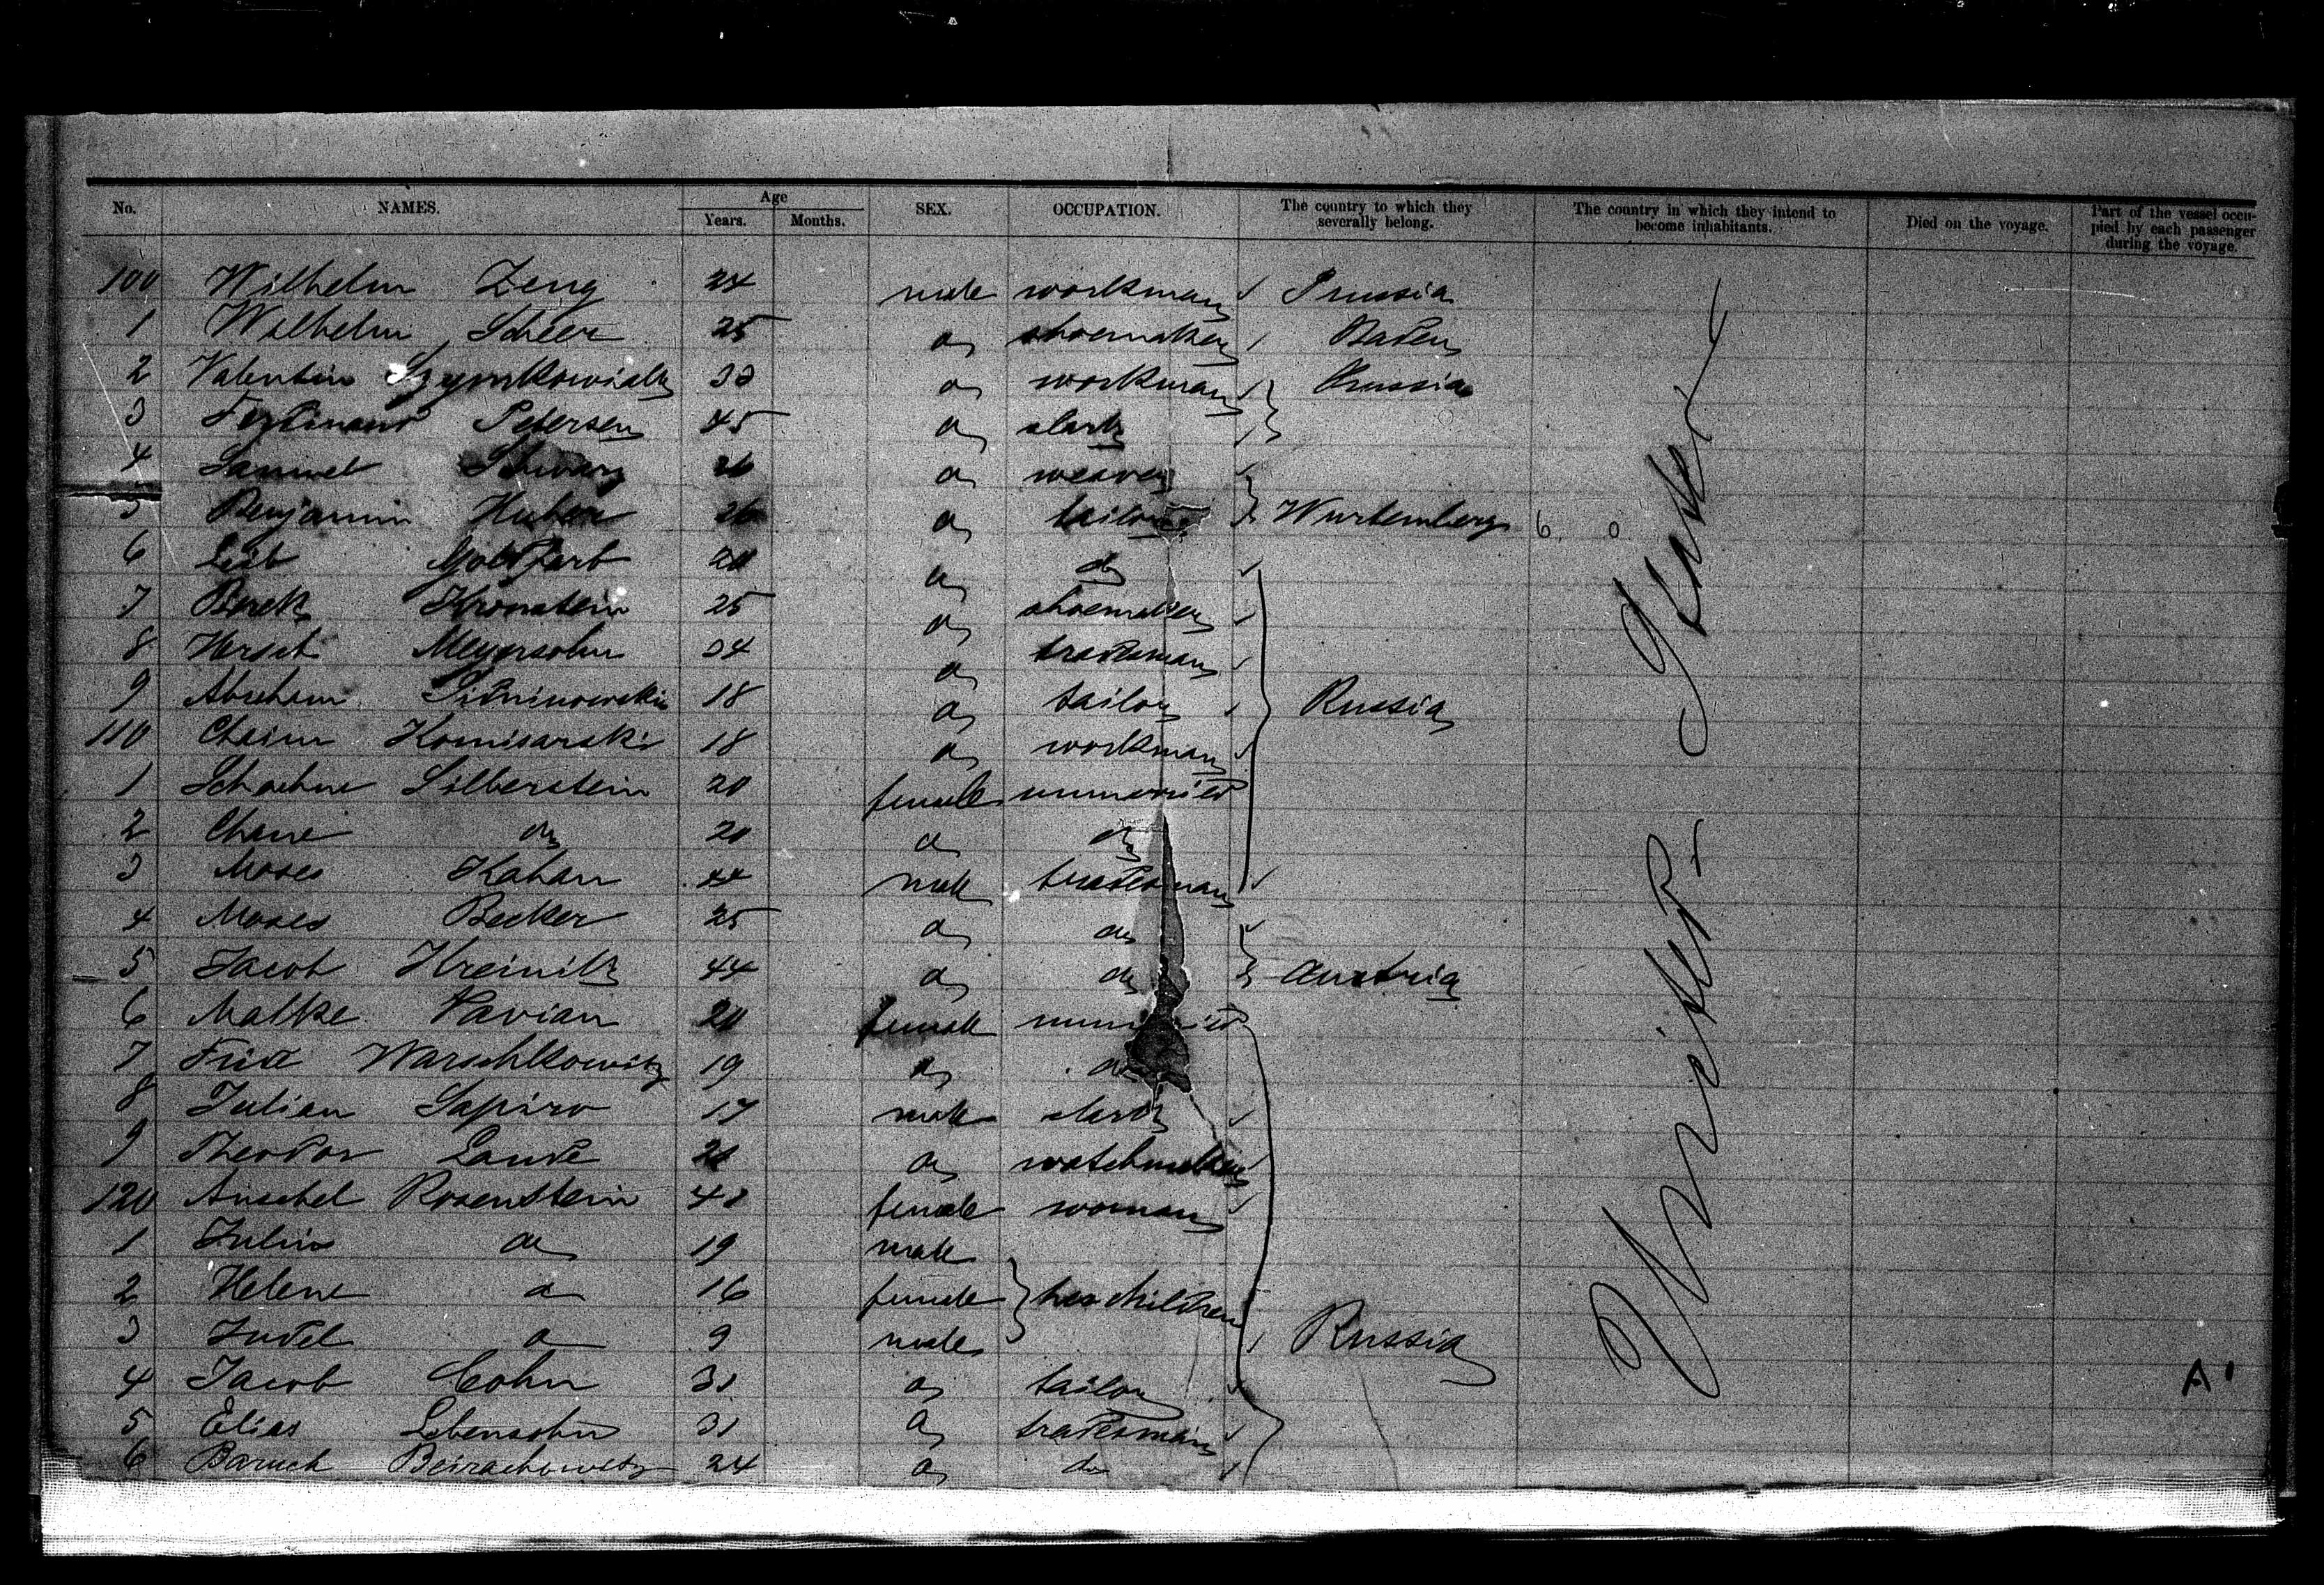 No. NAMES. Age Years. Months. SEX. OCCUPATION. The country to which they severally belong. The country in which they intend to become inhabitants. Died on the voyage. Part of the vessel occupied by each passenger during the voyage.
100 Wilhelm Zeng 24 male workman Prussia
1 Wilhelm Scheer 25 do shoemaker Baden
2 Valentin Szymkowiak 33 do workman Prussia
3 Ferdinand Petersen 45 do clerk
4 Samuel Schwarz 26 do weaver
5 Benjamin Huber 26 do tailor Wurtemberg 6 0
6 Leib Goldfarb 20 do do
7 Berek Kronstein 25 do shoemaker
8 Hersch Meyersohn 34 do tradesman
9 Abraham 18 do tailor Russia
110 Chaim Komisarski 18 do workman
1 Schaehne Silberstein 20 female unmarried
2 Chane do 20 do do
3 Moses Kahan 44 male tradesman
4 Moses Becker 25 do do
5 Jacob Kreinik 44 do do Austria
6 Malke Pavian 20 female unmarried
7 Warschkowitz 19 do do
8 Julian Sapiro 17 male clerk
9 Theodor Lande 20 do watchmaker
120 Anschel Rosenstein female woman
1 Julius do 19 male
2 Helene do 16 female her children
3 Judel do 9 male Russia
4 Jacob Cohn do tailor
5 Elias Lebensohn do tradesman
6 Baruch Beirachowitz 24 do do
United States
A